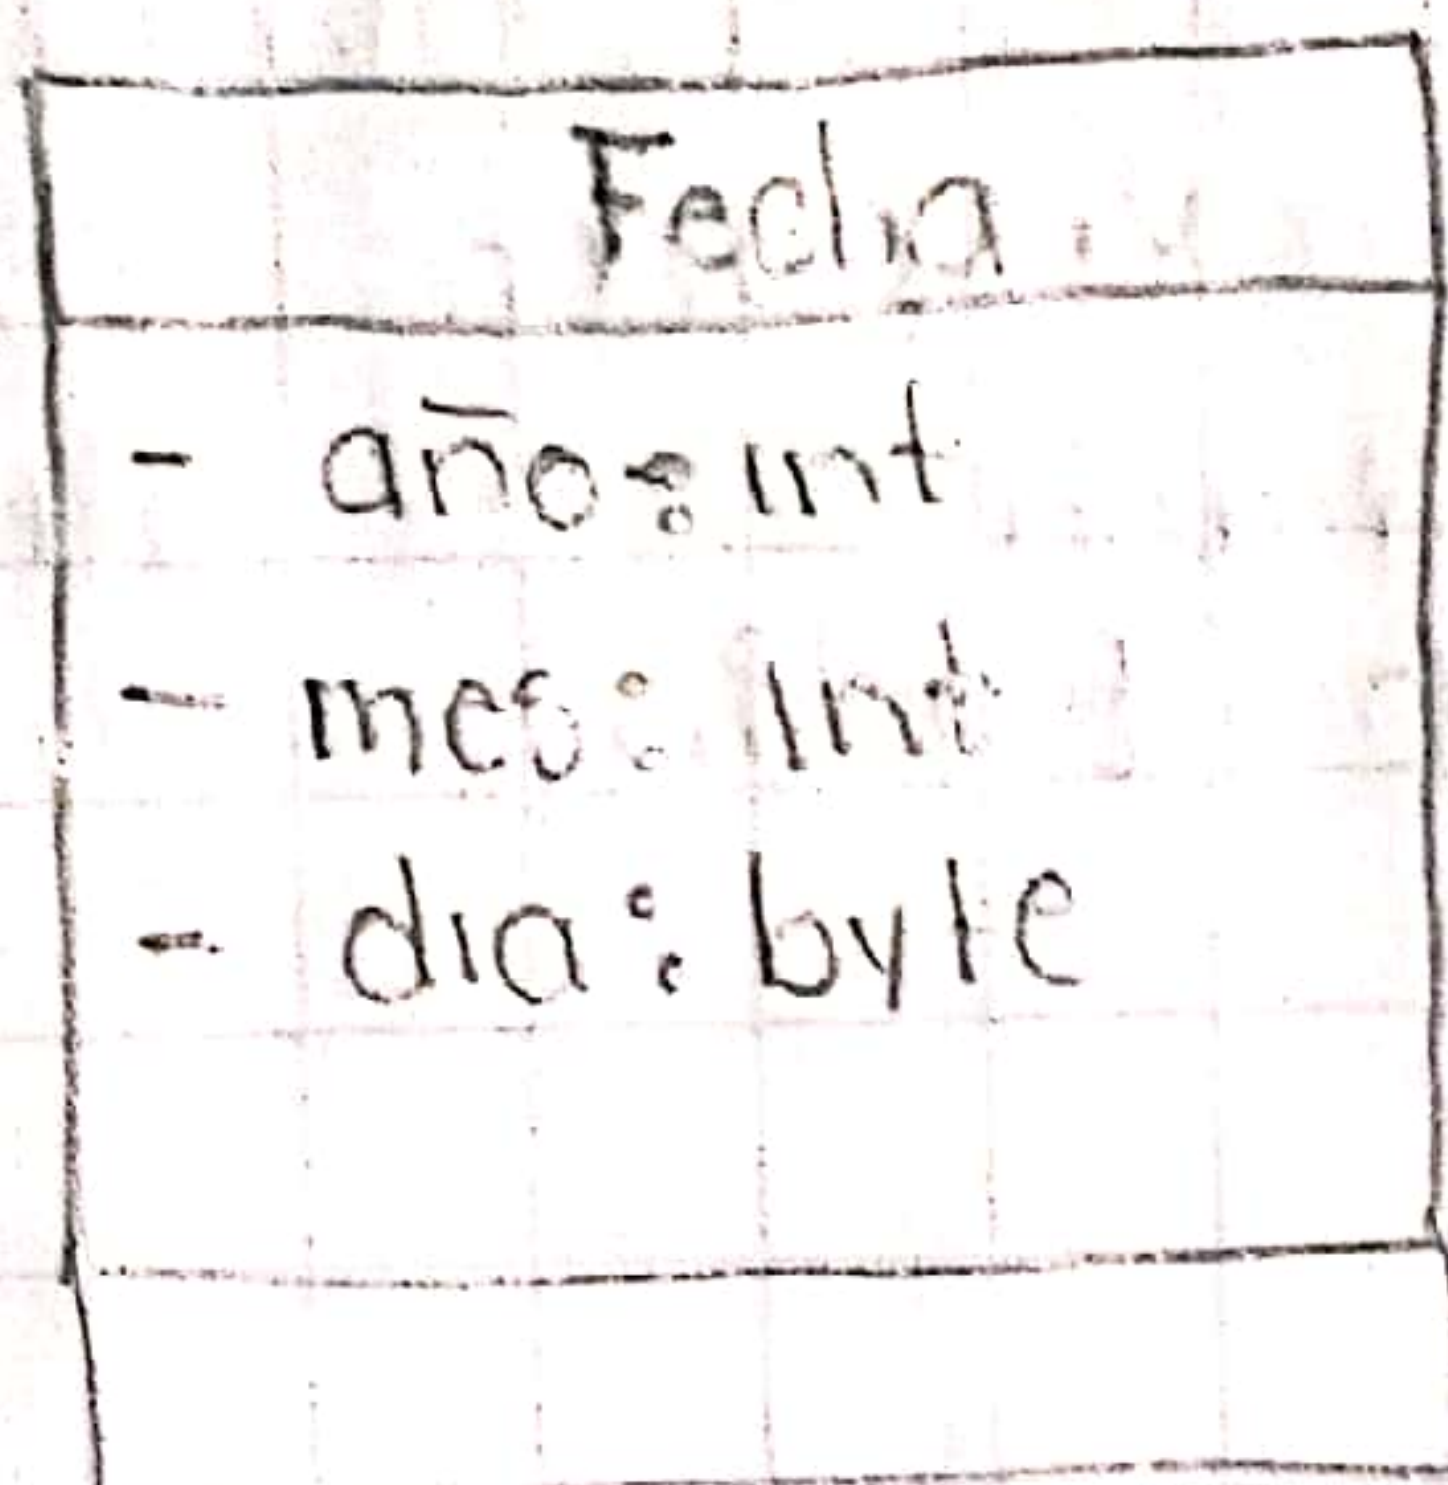 Fecha
- año: int
- mes: int
- dia: byte